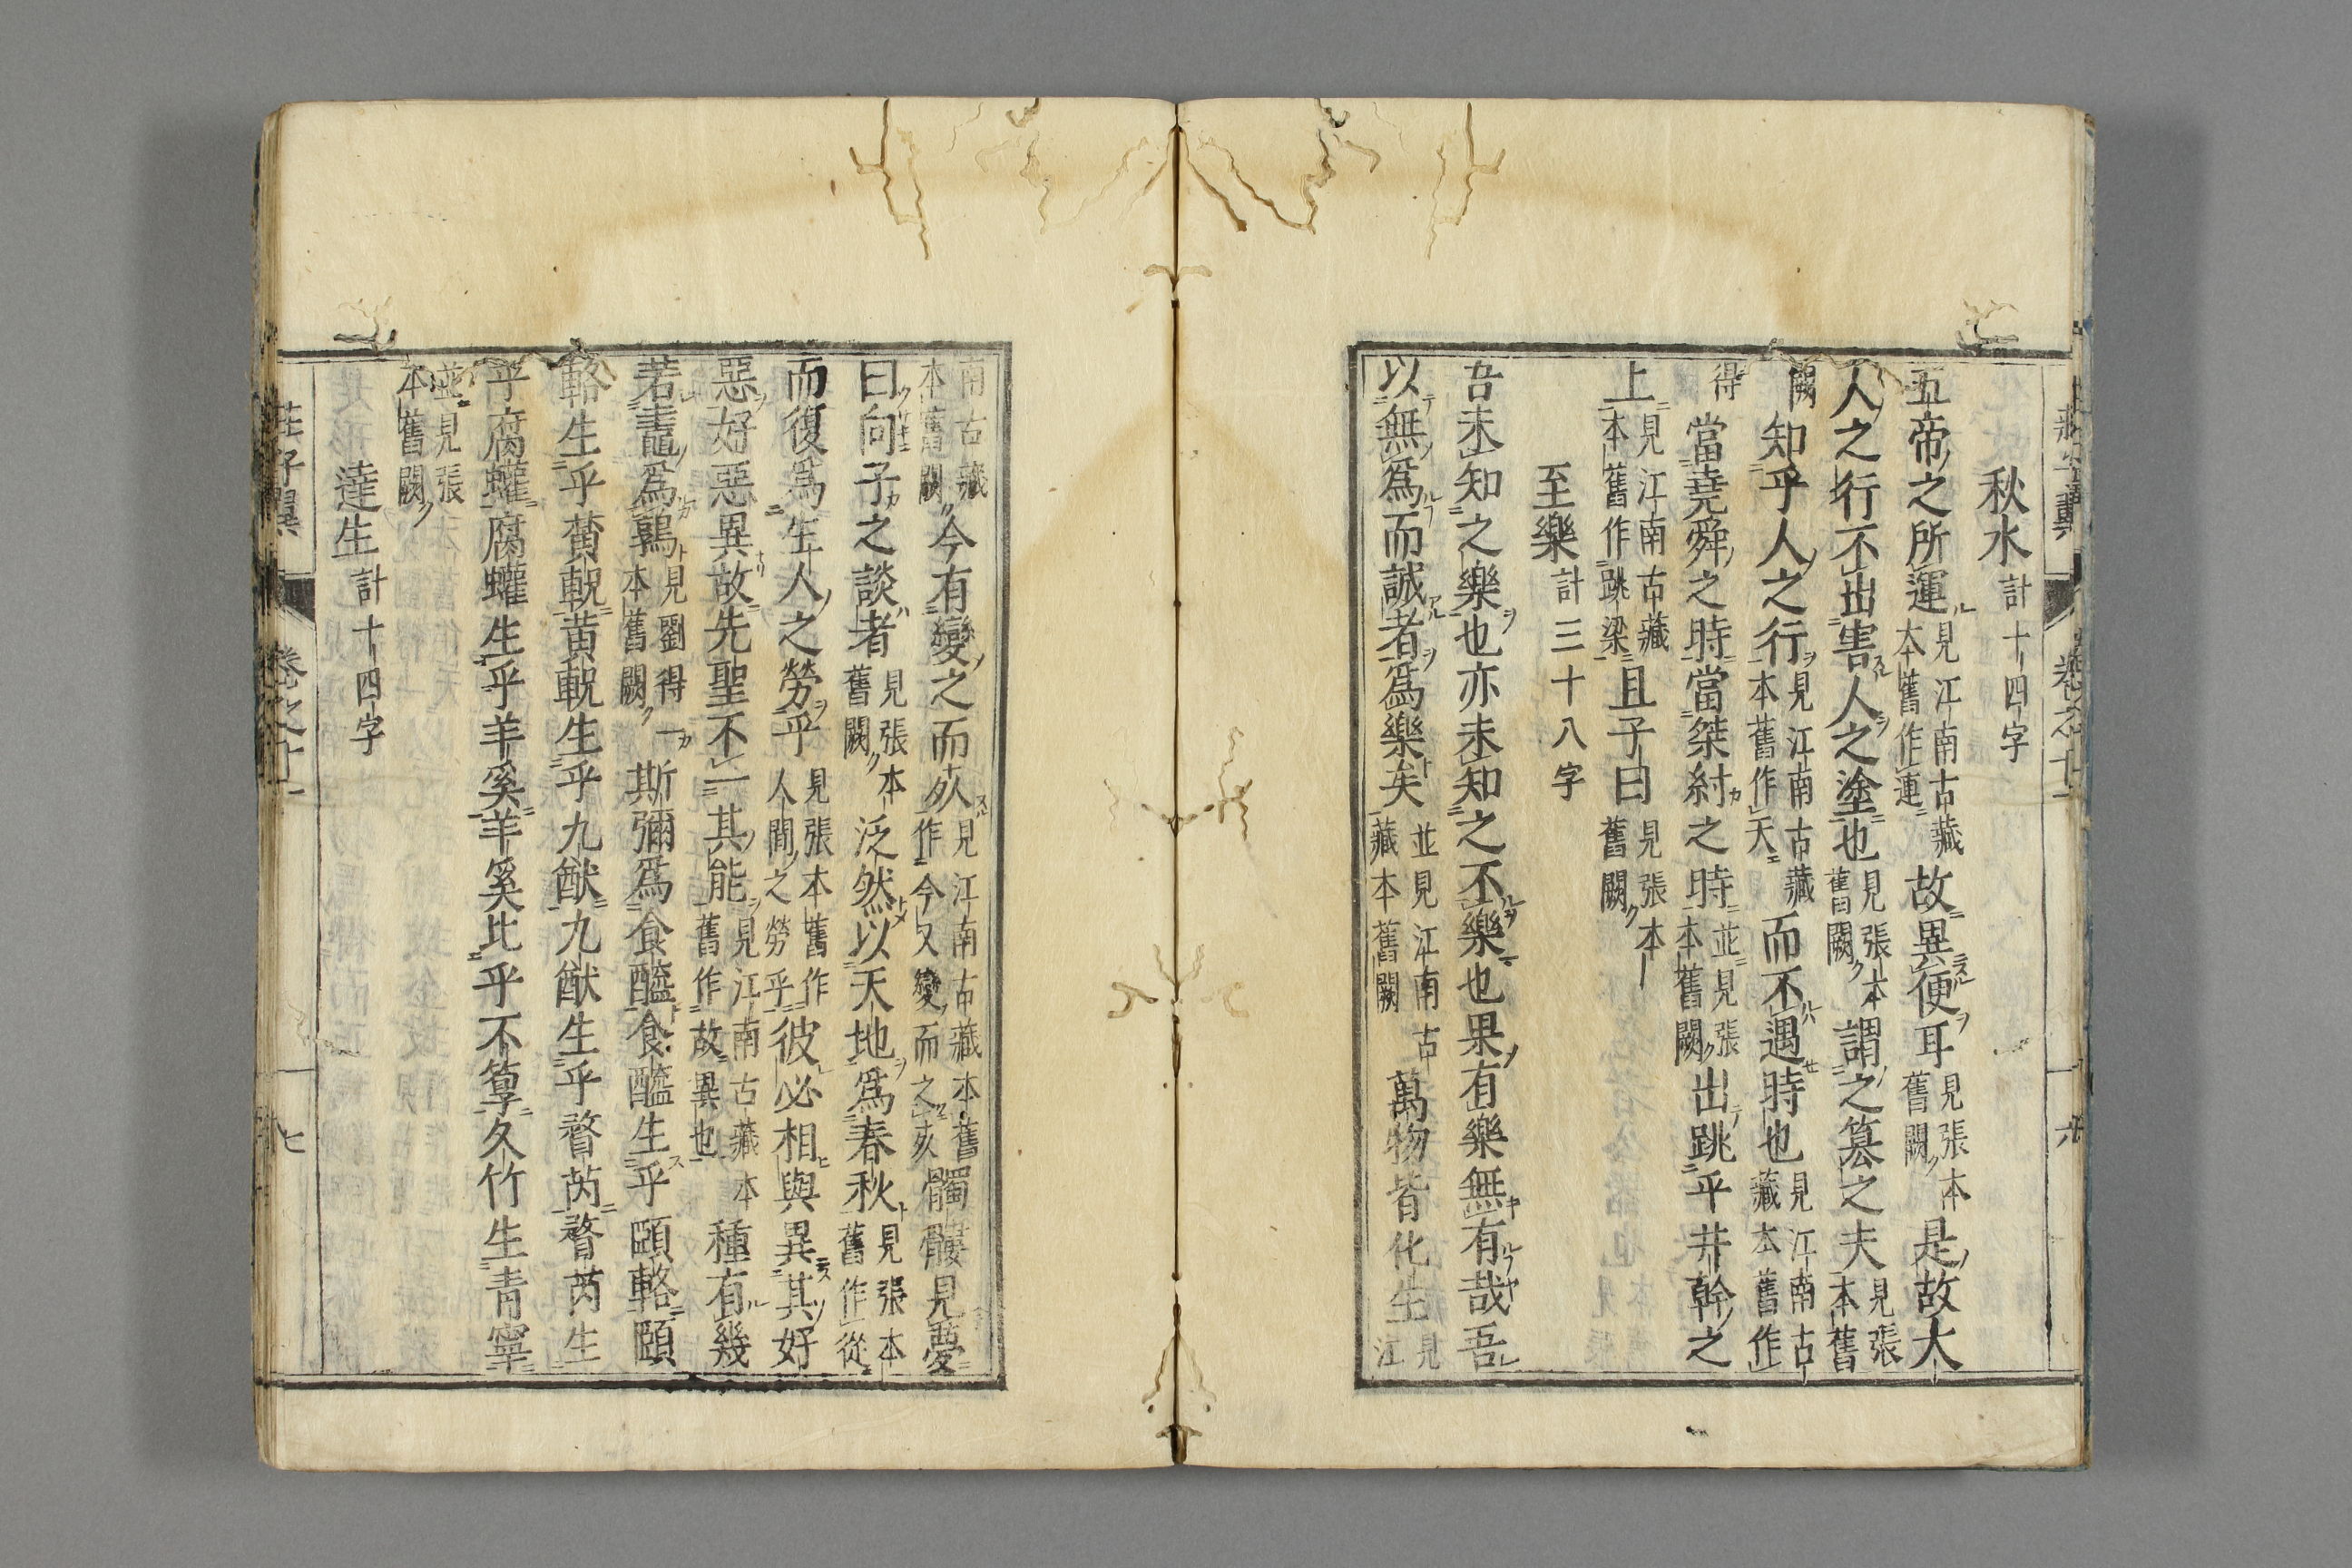 秋水計十四字
五帝之所運見江南古藏本舊作連故異便耳見張本舊闕是故大
人之行不出害人之塗也見張本舊闕謂之篡之夫見張本舊
闕知乎人之行見江南古藏本舊作天而不遇時也見江南古藏本舊作
得當堯舜之時當桀紂之時並見張本舊闕出跳乎井幹之
上見江南古藏本舊作跳梁且子曰見張本舊闕
至樂計三十八字
吾未知之樂也亦未知之不樂也果有樂無有哉吾
以無爲而誠者爲樂矣並見江南古藏本舊闕萬物皆化生見江
南古藏本舊闕今有變之而死見江南古藏本舊作今又變而之死髑髏見夢
曰向子之談者見張本舊闕泛然以天地爲春秋見張本舊作從
而復爲生人之勞乎見張本舊作人間之勞乎彼必相與異其好
惡好惡異故先聖不一其能見江南古藏本舊作故異也種有幾
若鼃爲鶉見劉得一本舊闕斯彌爲食醯食醯生乎頤輅頤
輅生乎黃軦黃軦生乎九猷九猷生乎瞀芮瞀芮生
乎腐蠸腐蠸生乎羊奚羊奚比乎不箰久竹生青寧
並見張本舊闕
達生計十四字
莊子翼 卷之十一 七